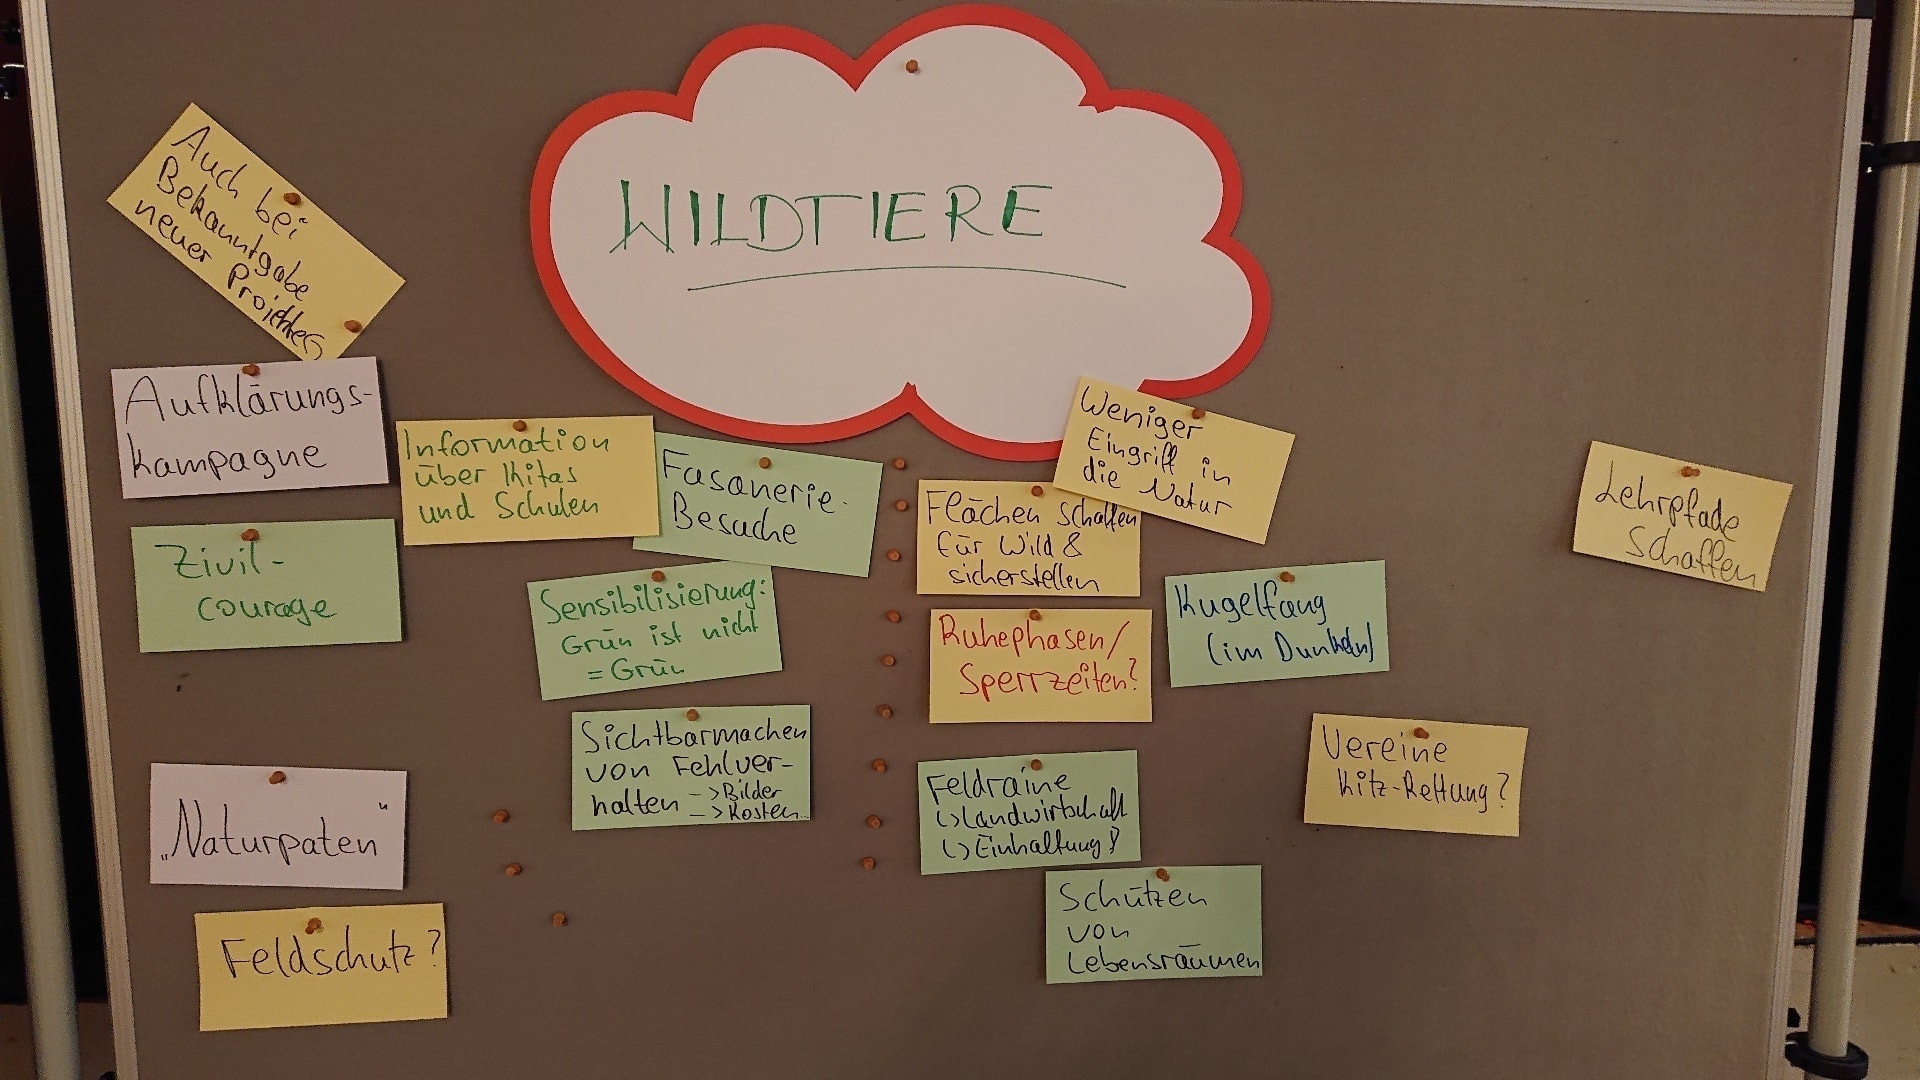 WILDTIERE
Auch bei
Bekanntgabe
neuer
Aufklärungs-
kampagne
Information
über Kitas
und Schulen
Fasanerie-
Besuche
Zivil-
courage
Sensibilisierung:
Grün ist nicht
= Grün
Sichtbarmachen
von Fehlver-
halten -> Bilder
-> Kosten...
„Naturpaten"
Feldschutz?
Weniger
Eingriff in
die Natur
Flächen schaffen
für Wild &
sicherstellen
Ruhephasen/
Sperrzeiten?
Kugelfang
(im Dunkeln)
Feldraine
↳ Landwirtschaft
↳ Einhaltung!
Schützen
von
Lebensräumen
Vereine
Kitz-Rettung?
Lehrpfade
schaffen